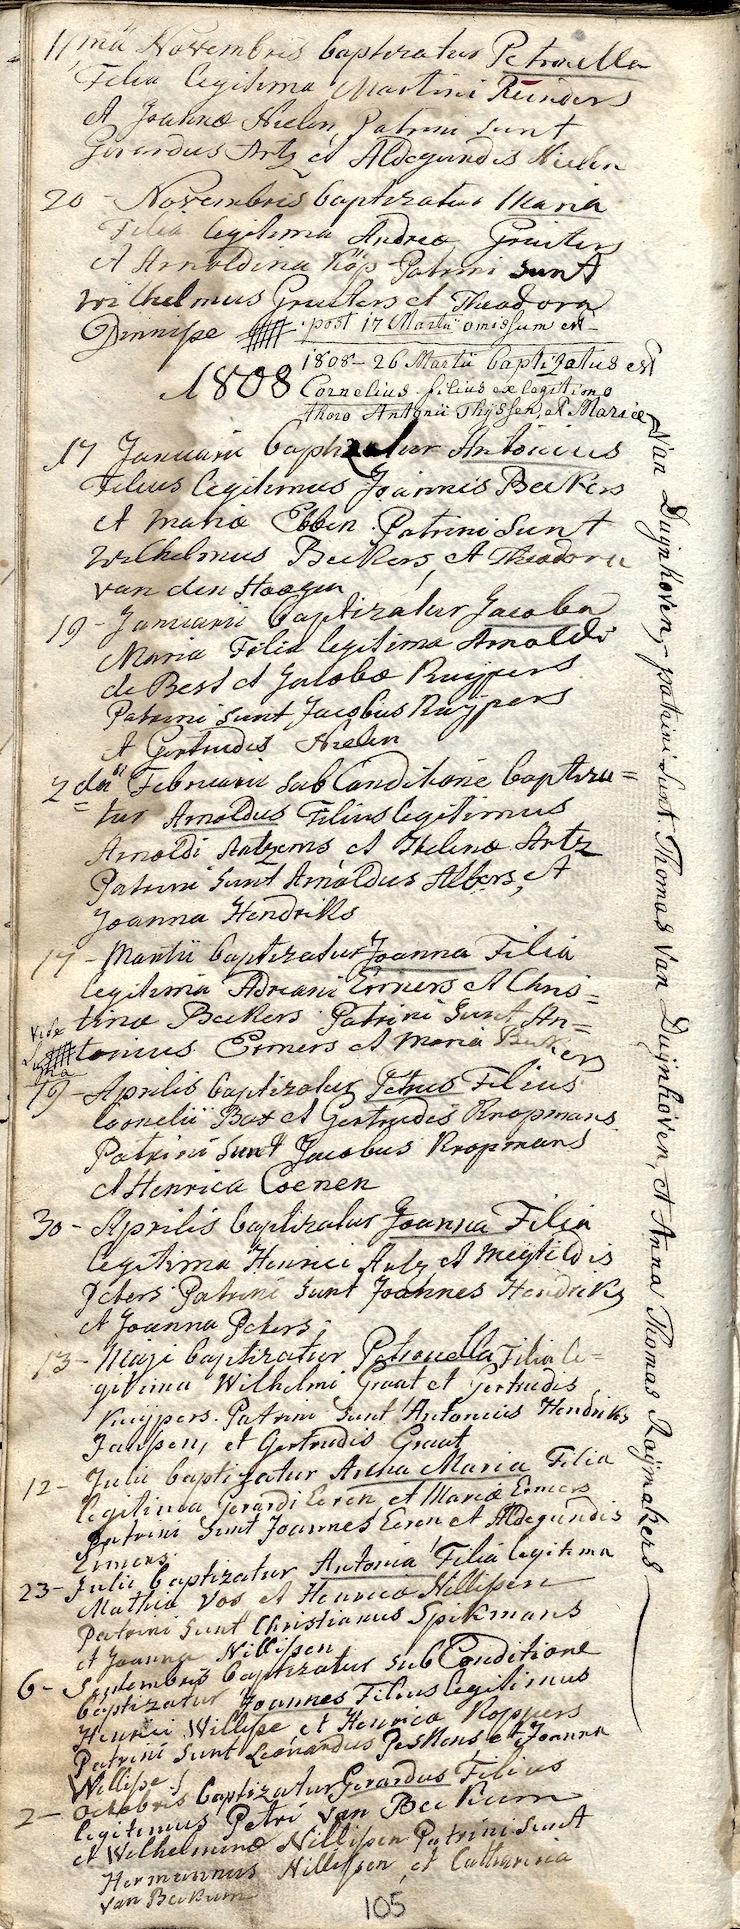 11mä Novembris baptizatur Petronella
Filia legitima Martini Reinders
et Joannæ Nielen, Patrini sunt
Gerardus Artz et Aldegundis Nielen
20 - Novembris baptizatur Maria
Filia legitima Andreæ Gruiters
et Arnoldina Köp Patrini sunt
Wilhelmus Gruiters et Theodora
Dinnisse
post 17 Martii omissum est
1808
1808 - 26 Martii baptizatus est
Cornelius filius ex legitimo
thoro Antonii Thyssen, et Mariæ
Van Duijnhoven, patrini sunt Thomas Van Duijnhoven, et Anna Thomas Raijmakers
17 Januarii baptizatur Antonius
Filius legitimus Joannis Beckers
et Mariæ Ebben. Patrini sunt
Wilhelmus Beckers, et Theodora
van den Hoogen
19 - Januarii baptizatur Jacoba
Maria Filia legitima Arnoldi
de Best et Jacobæ Kuijpers
Patrini sunt Jacobus Kuijpers
et Gertrudis Nielen
2da Februarii sub Conditione baptiza=
tur Arnoldus Filius legitimus
Arnoldi et Helenæ Artz
Patrini sunt Arnoldus Albers, et
Joanna Hendriks
17 - Martii baptizatur Joanna Filia
legitima Adriani Ermers et Chris=
tinæ Beckers. Patrini sunt An=
tonius Ermers et Maria Beckers
Vide
19 - Aprilis baptizatur Petrus Filius
Cornelii Bax et Gertrudis Kropmans
Patrini sunt Jacobus Kropmans
et Henrica Coenen
30 - Aprilis baptizatur Joanna Filia
legitima Henrici et Megtildis
Peters Patrini sunt Joannes Hendriks
et Joanna Peters
13 - Maji baptizatur Petronella Filia le=
gitima Wilhelmi Graat et Gertrudis
Kuijpers. Patrini sunt Antonius Hendriks
Janssen, et Gertrudis Graat
12 - Julii baptizatur Anna Maria Filia
legitima Gerardi Eeren et Mariæ Ermers
Patrini sunt Joannes Eeren et Aldegundis
Ermers
23 - Julii baptizatur Antonia Filia legitima
Mathiæ Vos et Henricæ Nillissen
Patrini sunt Christianus Spikmans
et Joanna Nillissen
6 - Septembris baptizatur sub Conditione
baptizatur Joannes Filius legitimus
Henrici Willisse et Henricæ Koppers
Patrini sunt Leonardus Peskens et Joanna
Willisse
2 - Octobris baptizatur Gerardus Filius
legitimus Petri van Beckum
et Wilhelminæ Nillissen Patrini sunt
Hermannus Nillissen et Catharina
van Beckum
105